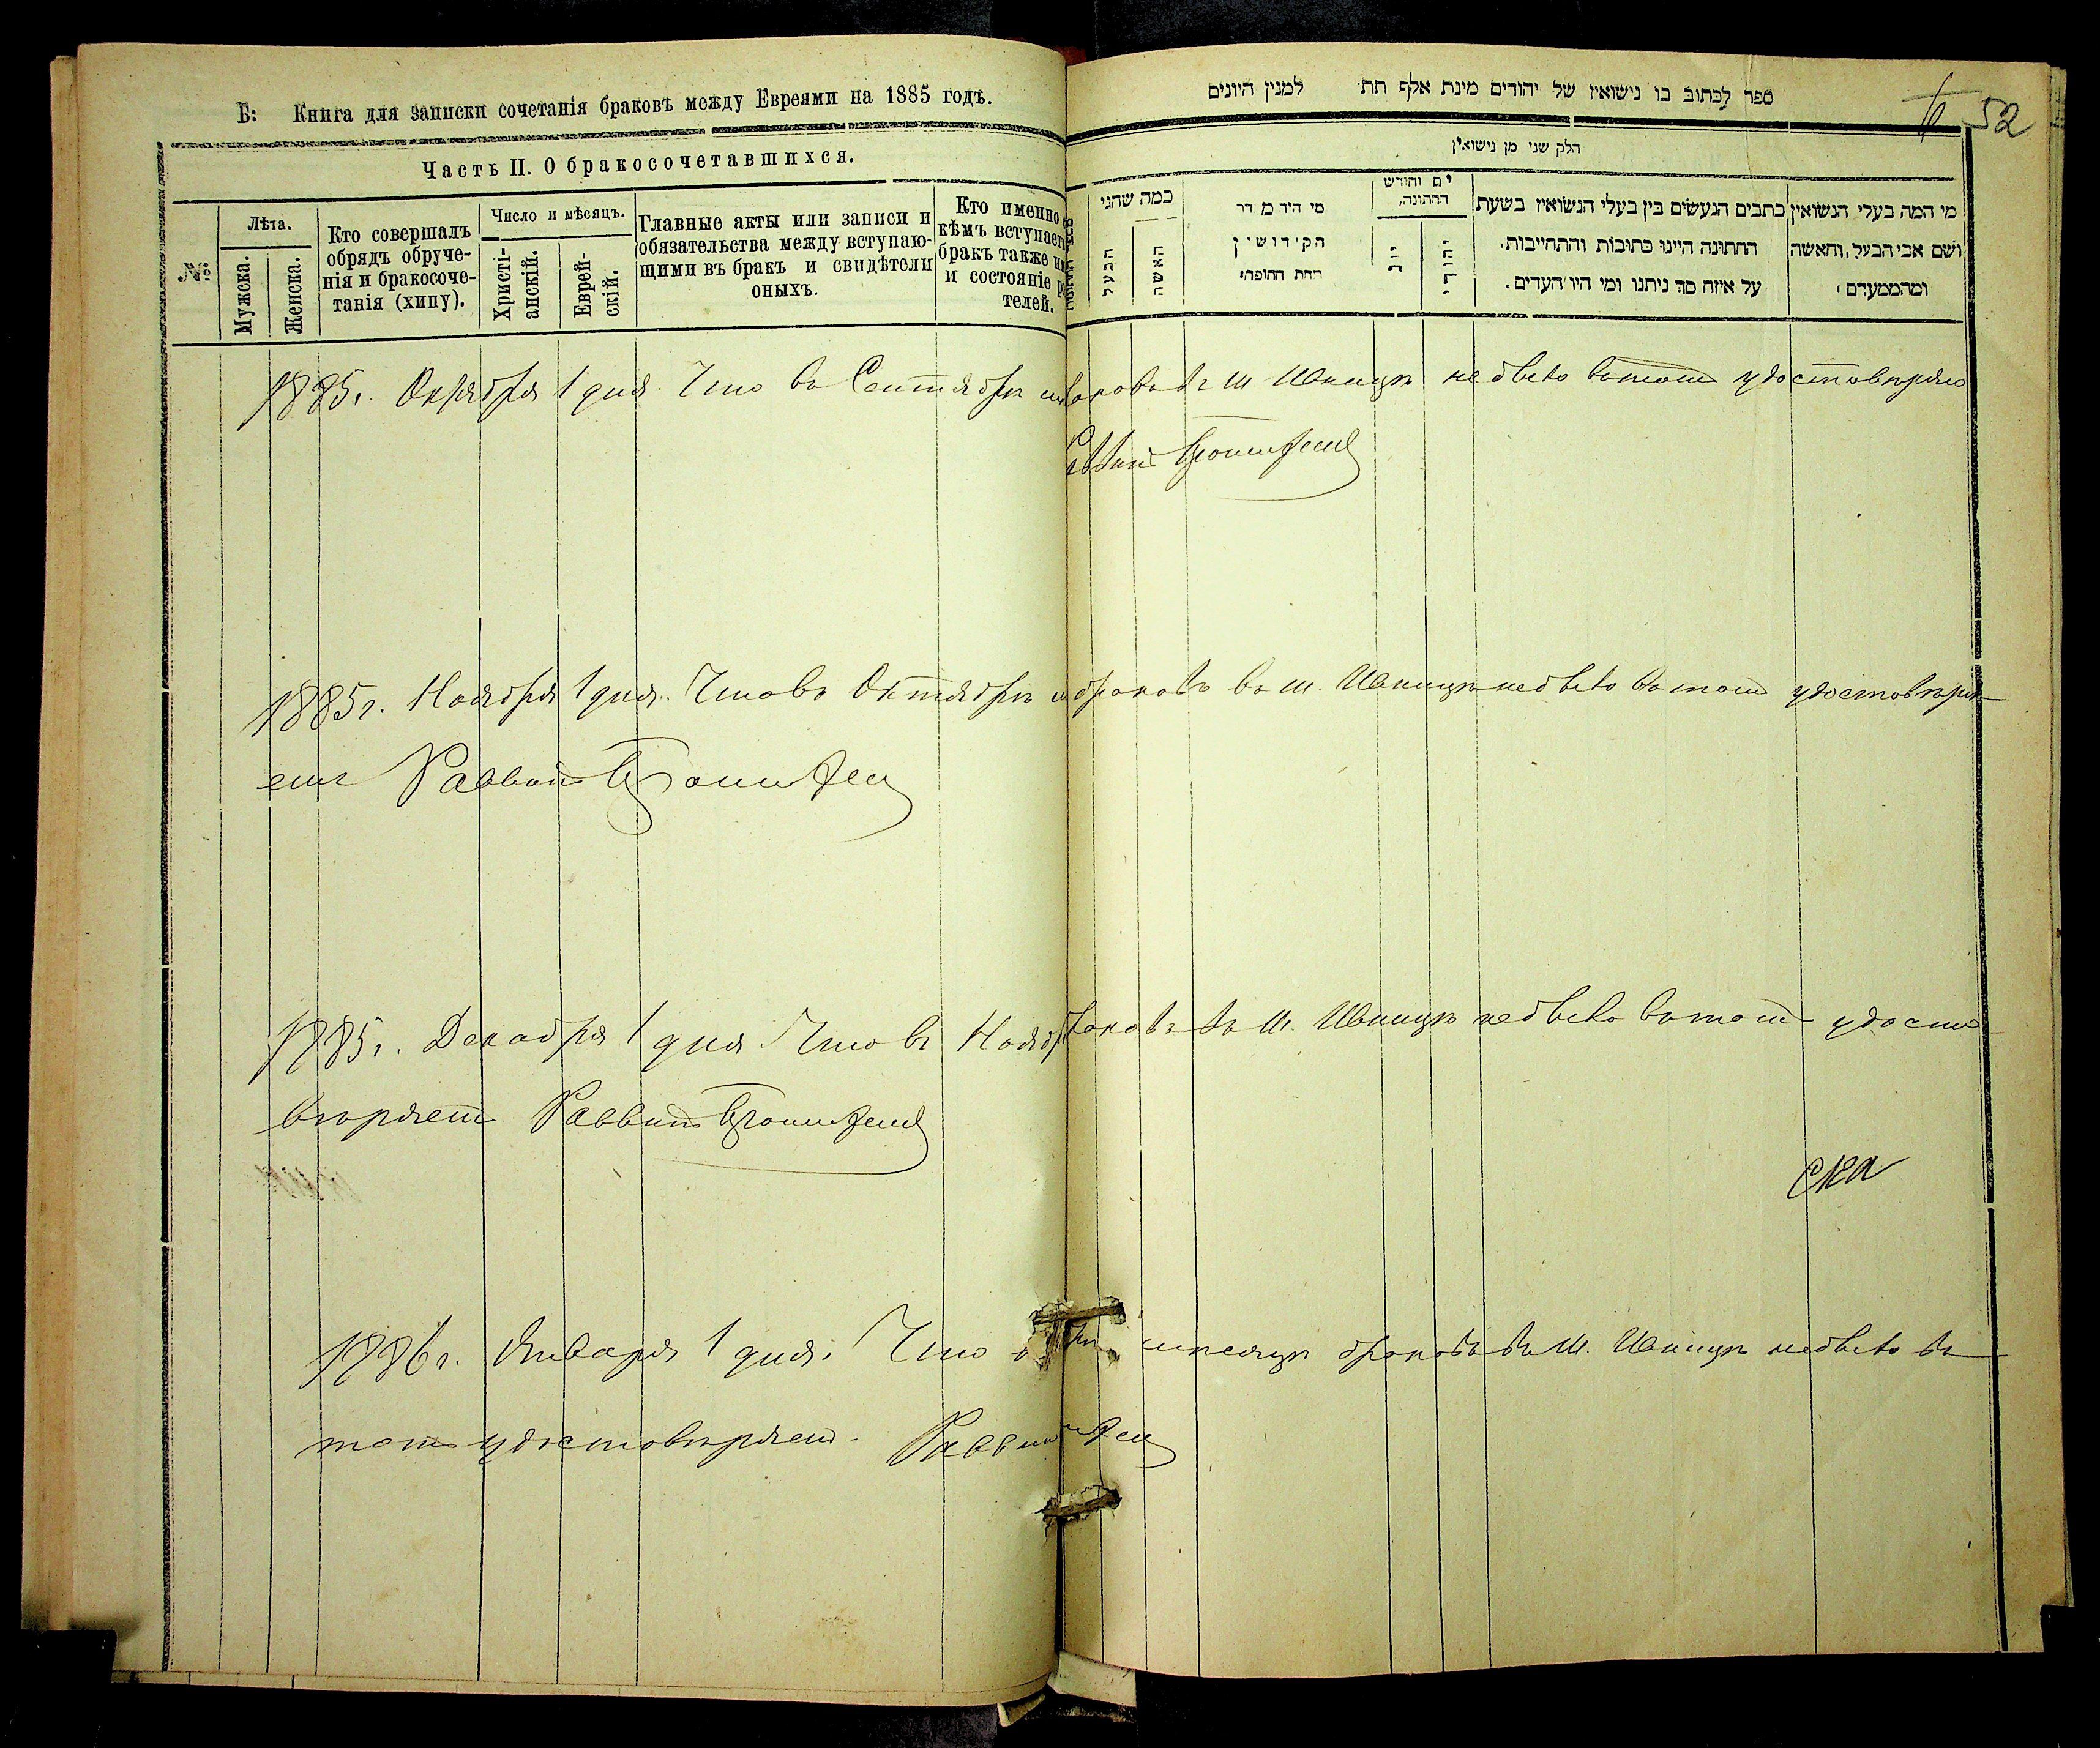 Б: Книга для записки сочетанія браковъ между Евреями на 1885 годъ.
Часть II. О бракосочетавшихся.
№:
Лѣта.
Мужска.
Женска.
Кто совершалъ
обрядъ обруче-
нія и бракосоче-
танія (хипу).
Число и мѣсяцъ.
Христі-
анскій.
Еврей-
скій.
Главные акты или записи и
обязательства между вступаю-
щими въ бракъ и свидѣтели
оныхъ.
Кто именно
кѣмъ вступаетъ
бракъ также
и состояніе
телей.
ספר לכתוב בו נישואין של יהודים מינת אלף תת למנין היונים
52
חלק שני מן נישואין
מי המה בעלי הנשואין
ושם אבי הבעל, והאשה
ומהממעדם
כתבים הנעשים בין בעלי הנשואין בשעת
החתונה היינו כתובות והתחייבות.
על איזה סך ניתנו ומי היו העדים.
יום וחודש
החתונה,
יהודי
יוני
מי היה מסדר
הקידושין
תחת החופה
כמה שהגי
האשה
הבעל
1885г. Октября 1 дня. Что въ Сентябрѣ браковъ въ м. Ивницѣ не было въ томъ удостовѣряю
Раввинъ
1885г. Ноября 1 дня. Что въ Октябрѣ м браковъ въ м. Ивницѣ не было въ томъ удостовѣря-
етъ Раввинъ
1885г. Декабря 1 дня Что въ Нояб браковъ въ м. Ивницѣ не было въ томъ удосто-
вѣряетъ Раввинъ
ска
1886г. Января 1 дня. Что мѣсяцѣ браковъ въ м. Ивницѣ не было въ
томъ удостовѣряетъ. Раввинъ